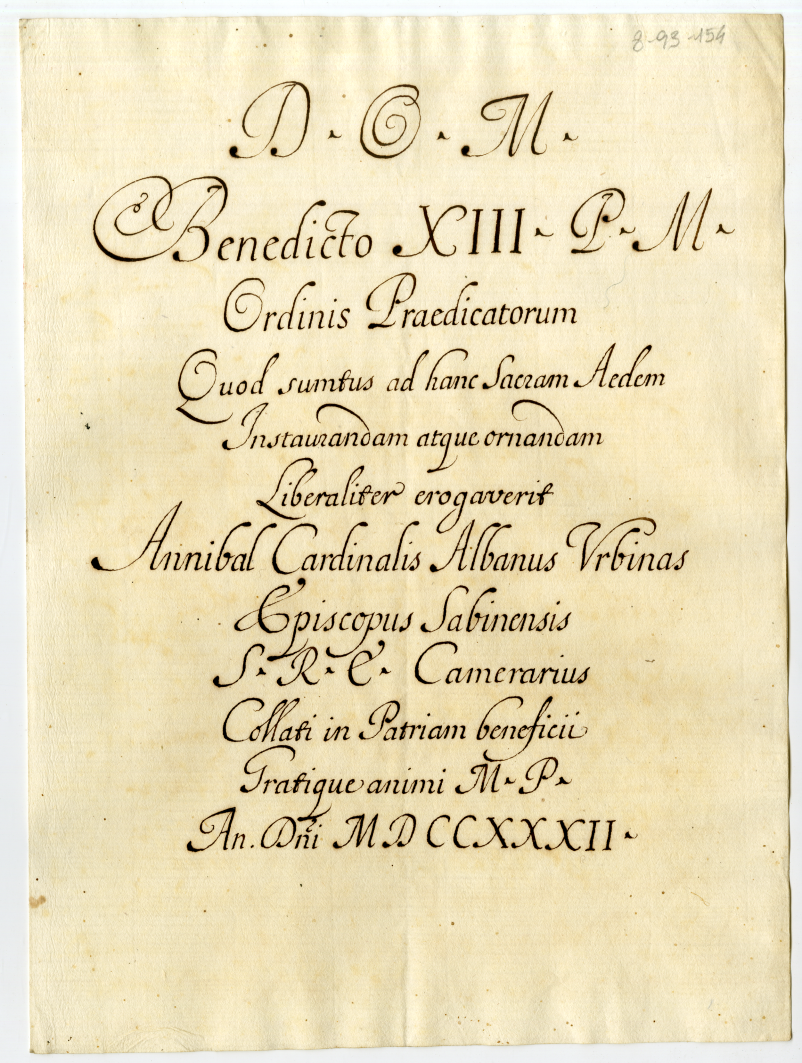 8-93-154
D. O. M.
Benedicto XIII. P. M.
Ordinis Praedicatorum
Quod sumtus ad hanc Sacram Aedem
Instaurandam atque ornandam
Liberaliter erogaverit
Annibal Cardinalis Albanus Vrbinas
Episcopus Sabinensis
S. R. E. Camerarius
Collati in Patriam beneficii
Gratique animi M. P.
An. Dñi MDCCXXXII.